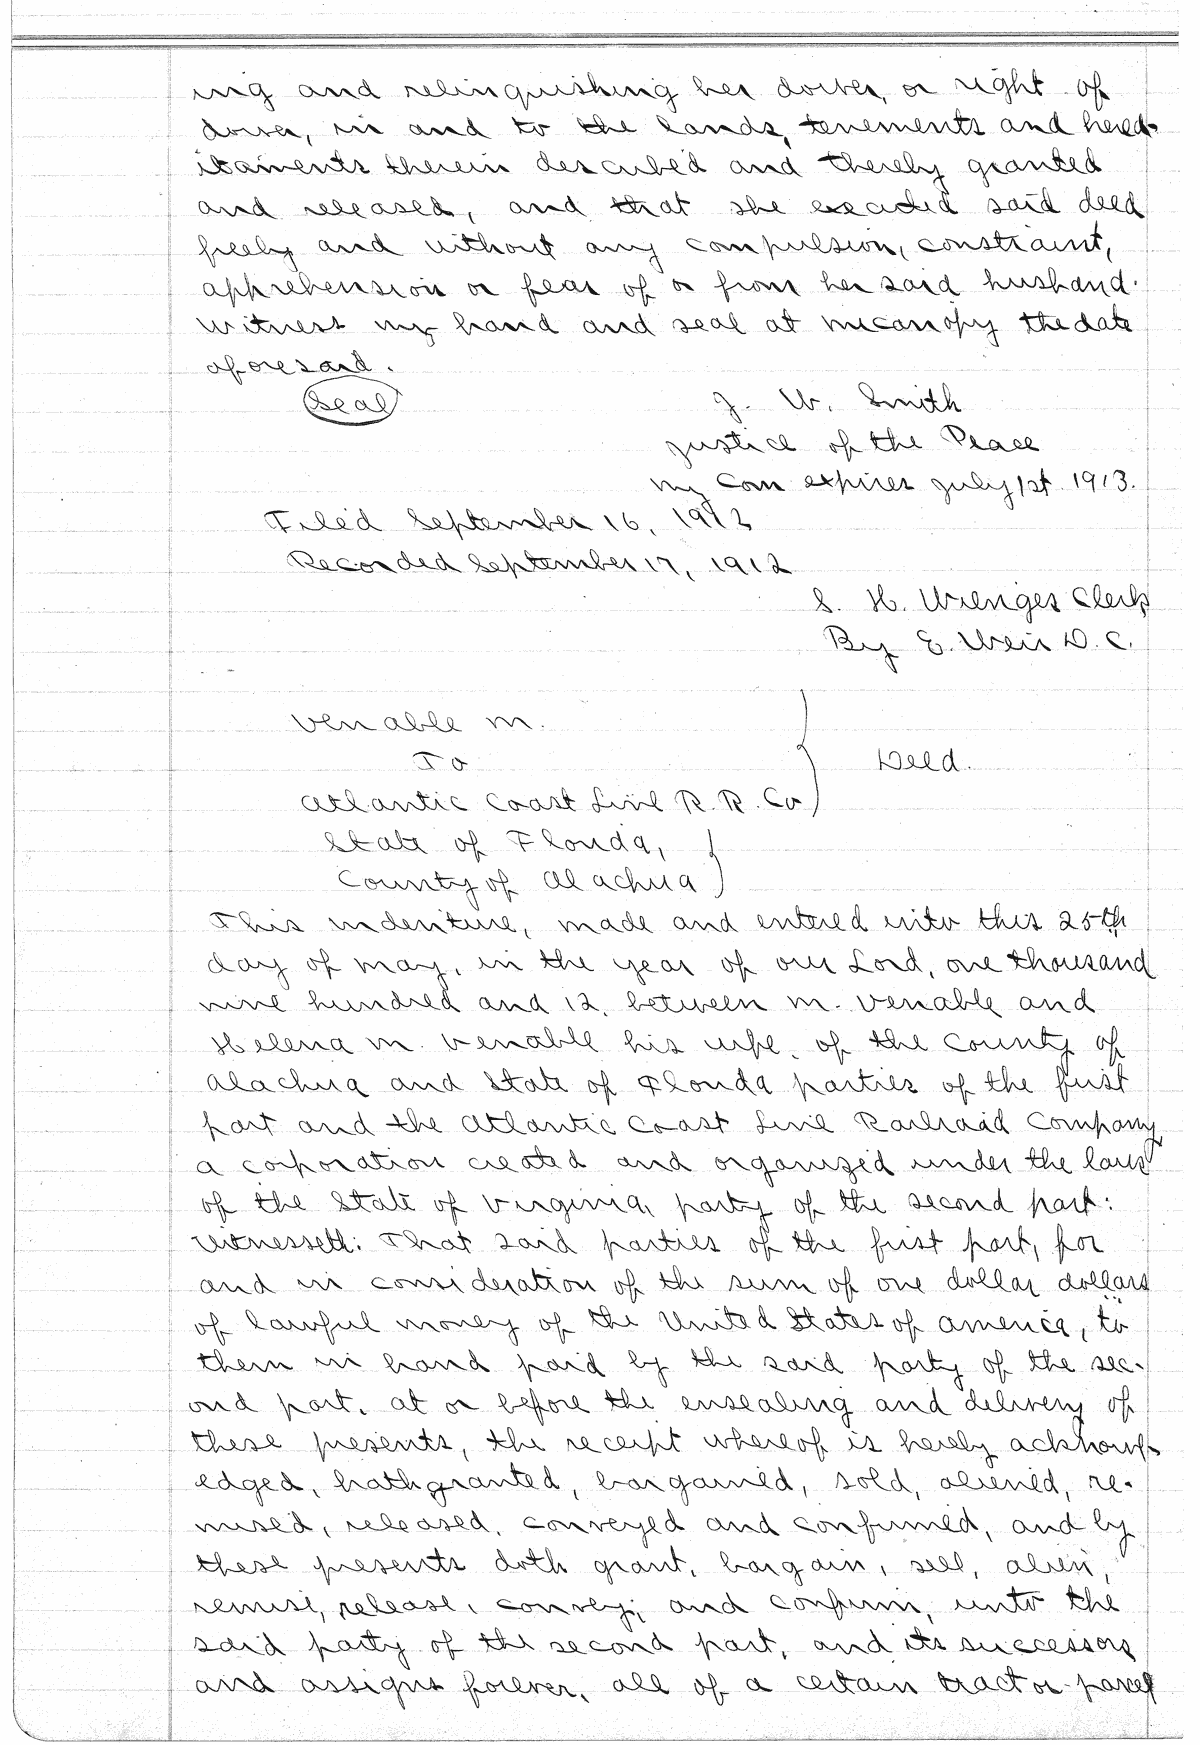 ing and relinquishing her dower, or right of
dower, in and to the lands, tenements and hered-
itaments therein described and thereby granted
and released, and that she executed said deed
freely and without any compulsion, constraint,
apprehension or fear of or from her said husband.
Witness my hand and seal at Micanopy the date
aforesaid.
Seal J. W. Smith
Justice of the Peace
my Com expires July 1st 1913.
Filed September 16, 1912
Recorded September 17, 1912
S. H. Wienges Clerk
By E. Weir D.C.
Venable M.
To Deed.
Atlantic Coast Line R. R. Co
State of Florida,
County of Alachua
This indenture, made and entered into this 25th
day of May, in the year of our Lord, one thousand
nine hundred and 12, between M. Venable and
Helena M. Venable his wife, of the County of
Alachua and State of Florida parties of the first
part and the Atlantic Coast Line Railroad Company
a corporation created and organized under the laws
of the State of Virginia, party of the second part:
Witnesseth: That said parties of the first part, for
and in consideration of the sum of one dollar dollars
of lawful money of the United States of America, to
them in hand paid by the said party of the sec-
ond part, at or before the ensealing and delivery of
these presents, the receipt whereof is hereby acknowl-
edged, hath granted, bargained, sold, aliened, re-
mised, released, conveyed and confirmed, and by
these presents doth grant, bargain, sell, alien,
remise, release, convey, and confirm, unto the
said party of the second part, and its successors
and assigns forever, all of a certain tract or parcel